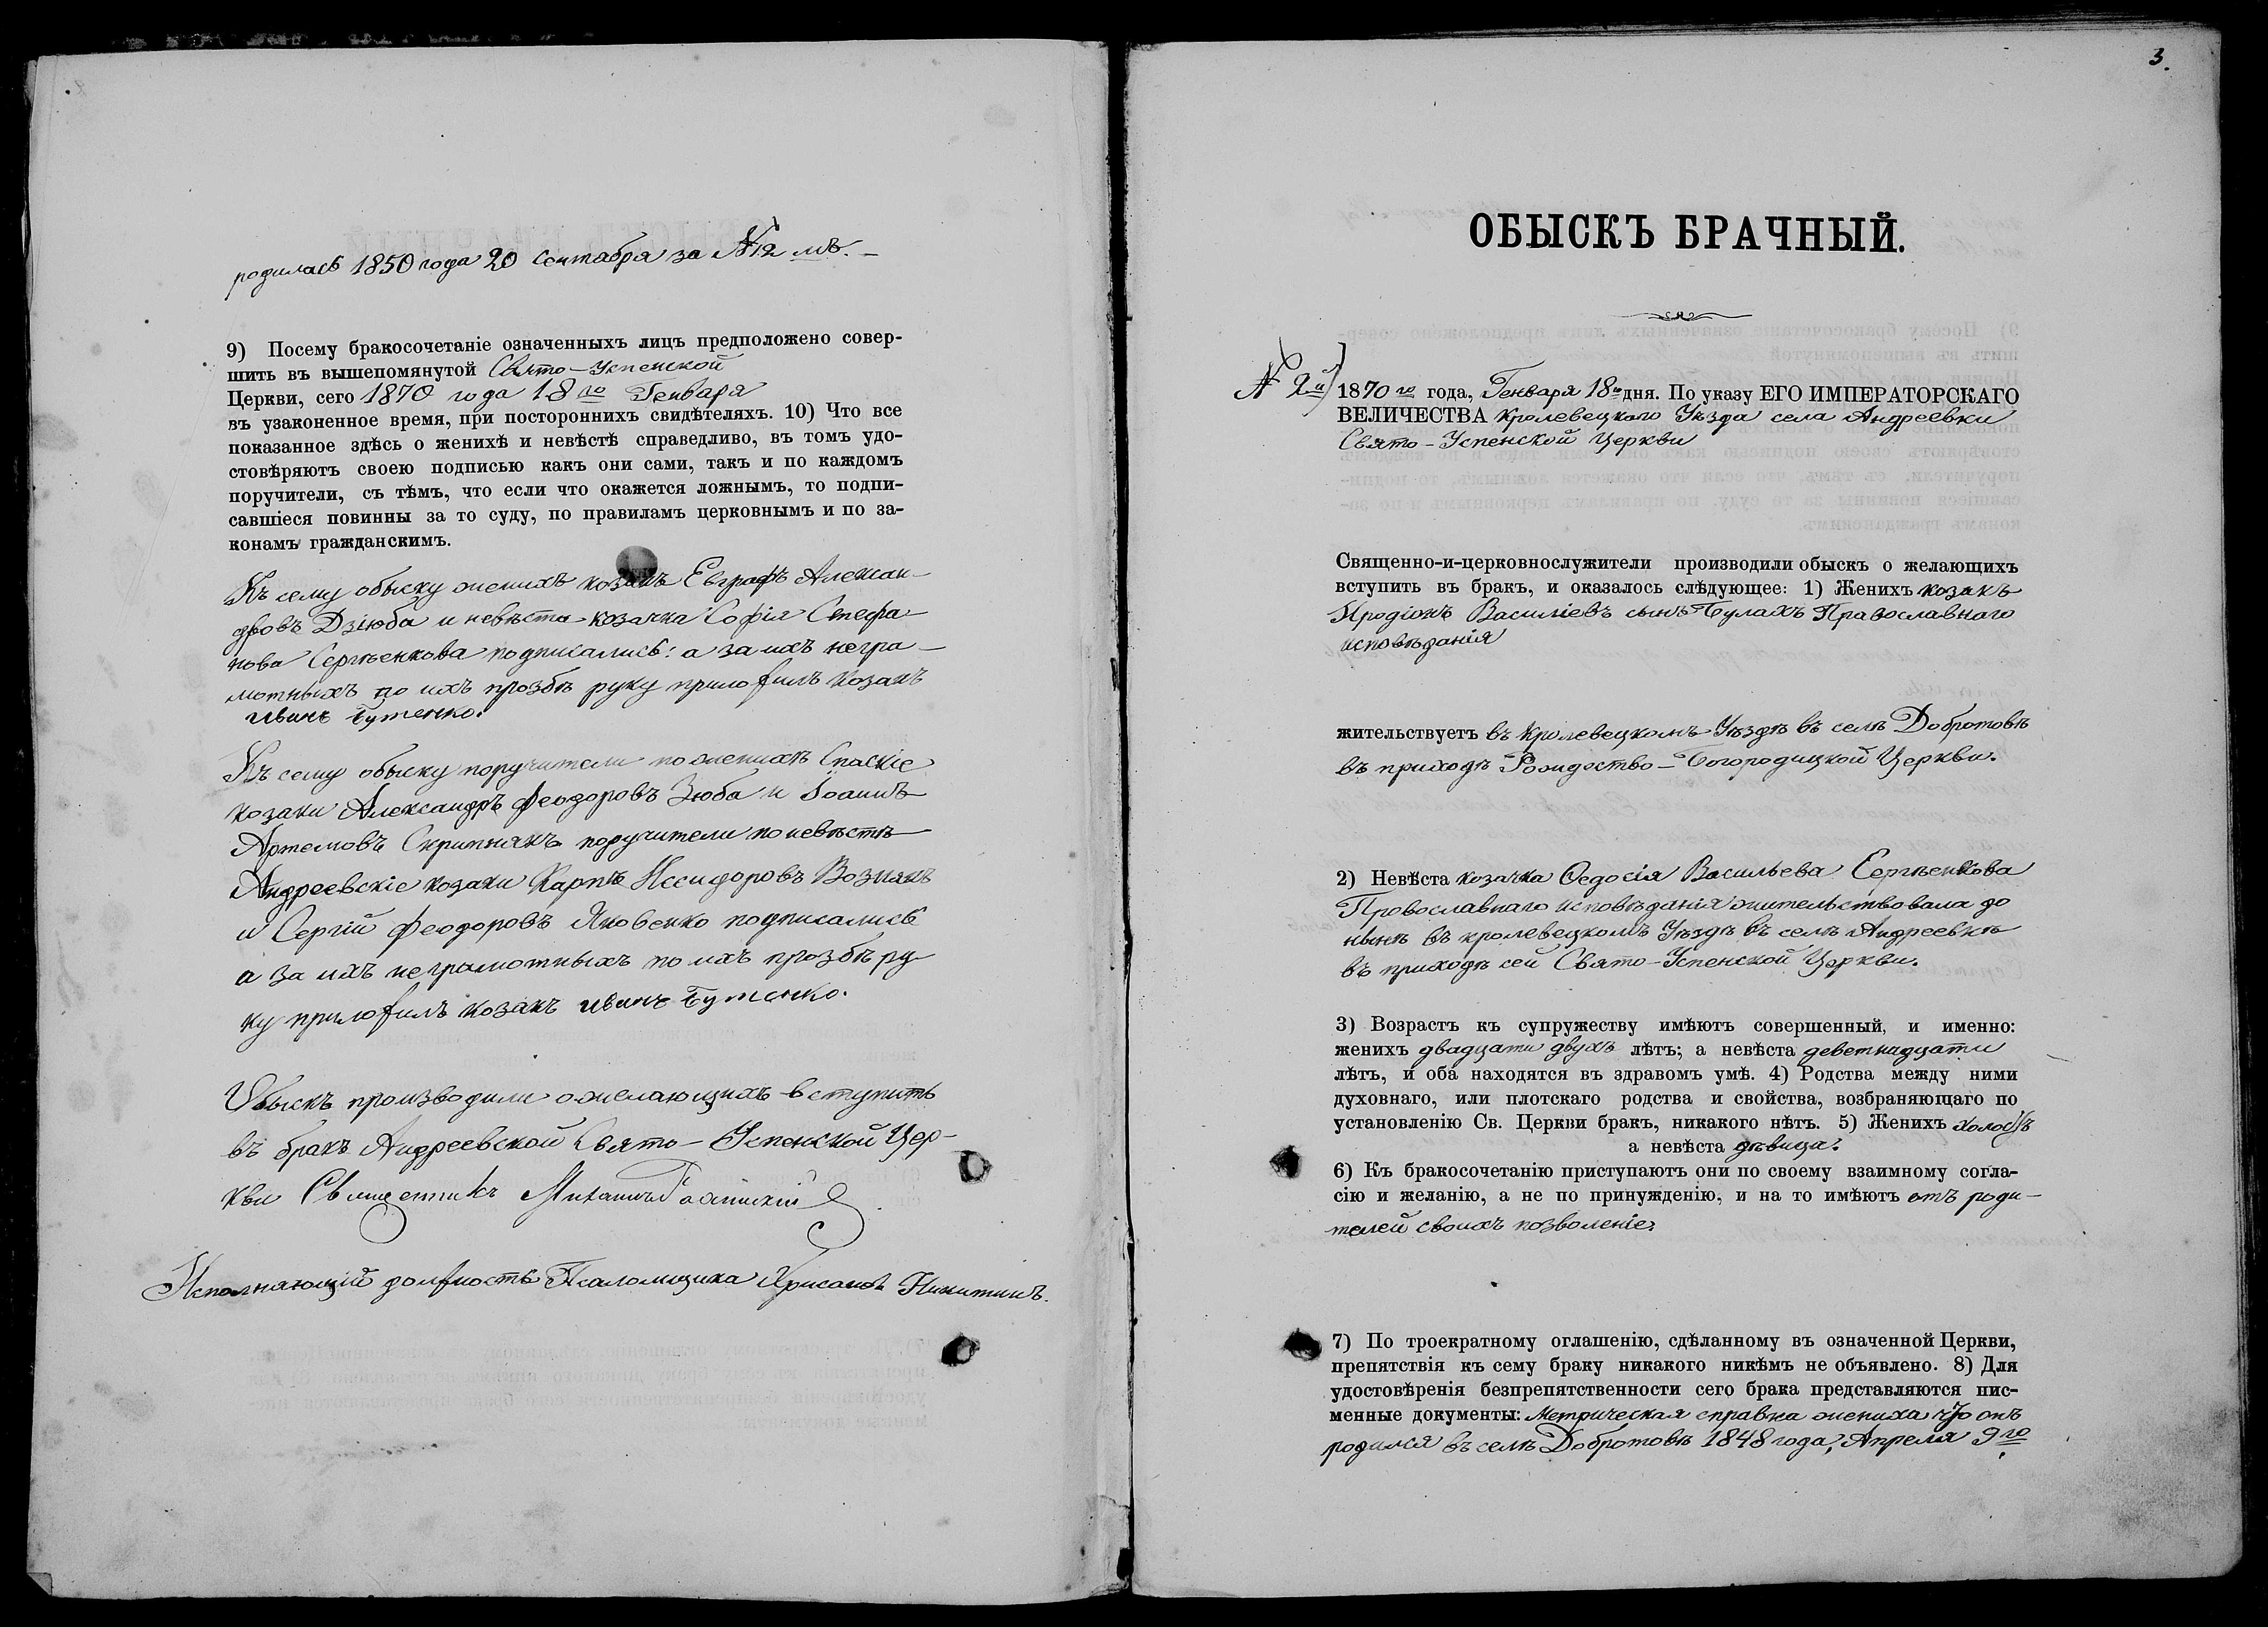 родилась 1850 года 20 Сентабря за № 12 мъ. –
9) Посему бракосочетаніе означенныхъ лицъ предположено совер-
шить въ вышепомянутой Свято – Успенской
Церкви, сего 1870 года 18 го Генваря
въ узаконенное время, при постороннихъ свидѣтеляхъ. 10) Что все
показанное здѣсь о женихѣ и невѣстѣ справедливо, въ томъ удо-
стовѣряютъ своею подписью какъ они сами, такъ и по каждомъ
поручители, съ тѣмъ, что если что окажется ложнымъ, то подпи-
савшіеся повинны за то суду, по правиламъ церковнымъ и по за-
конамъ гражданскимъ.
Къ сему обыску женихъ козакъ Евграфъ Алексан-
дровъ Дзюба и невѣста козачка Софія Стефа-
нова Сергѣенкова подписались: а за ихъ негра-
мотныхъ по ихъ прозбѣ руку приложилъ Козакъ
иванъ Бутенко.
Къ сему обыску поручители по женихѣ Спаскіе
козаки Александръ Феодоровъ Зюба и Іоаннъ
Артемовъ Скрипнякъ поручители по невѣстѣ
Андреевскіе козаки Карпъ Иссидоровъ Вознякъ
и Сергій Феодоровъ Яковенко подписались
а за ихъ неграмотныхъ по ихъ прозбѣ ру-
ку приложилъ козакъ иванъ Бутенко.
Обыскъ производили о желающихъ вступить
въ бракъ Андреевской Свято – Успенской Цер-
кви Священникъ Михаилъ
Исполняющій должность Псаломщика Хрисанфъ Никитинъ.
3.
ОБЫСКЪ БРАЧНЫЙ.
№ 2й) 1870 го года, Генваря 18 го дня. По указу ЕГО ИМПЕРАТОРСКАГО
ВЕЛИЧЕСТВА Кролевецкого Уѣзда села Андреевки
Свято – Успенской Церкви
Священно-и-церковнослужители производили обыскъ о желающихъ
вступить въ бракъ, и оказалось слѣдующее: 1) Женихъ козакъ
Иродіонъ Василіевъ сынъ Булахъ Православнаго
исповѣданія
жительствуетъ въ Кролевецкомъ Уѣздѣ въ селѣ Добротовѣ
въ приходѣ Рождество – Богородицкой Церкви.
2) Невѣста козачка Федосія Васильева Сергѣенкова
Провославнаго исповѣданія жительствовала до
нынѣ въ кролевецкомъ Уѣздѣ въ селѣ Андреевкѣ
въ приходѣ сей Свято – Успенской Церкви.
3) Возрастъ къ супружеству имѣютъ совершенный, и именно:
женихъ двадцати двухъ лѣтъ; а невѣста деветнадцати
лѣтъ, и оба находятся въ здравомъ умѣ. 4) Родства между ними
духовнаго, или плотскаго родства и свойства, возбраняющаго по
установленію Св. Церкви бракъ, никакого нѣтъ. 5) Женихъ холостъ
а невѣста дѣвица.
6) Къ бракосочетанію приступаютъ они по своему взаимному согла-
сію и желанію, а не по принужденію, и на то имѣютъ отъ роди-
телей своихъ позволеніе.
7) По троекратному оглашенію, сдѣланному въ означенной Церкви,
препятствія къ сему браку никакого никѣмъ не объявлено. 8) Для
удостовѣренія безпрепятственности сего брака представляются пис-
менные документы: Метрическая справка жениха что онъ
родился въ селѣ Добротовѣ 1848 года, Апреля 9 го